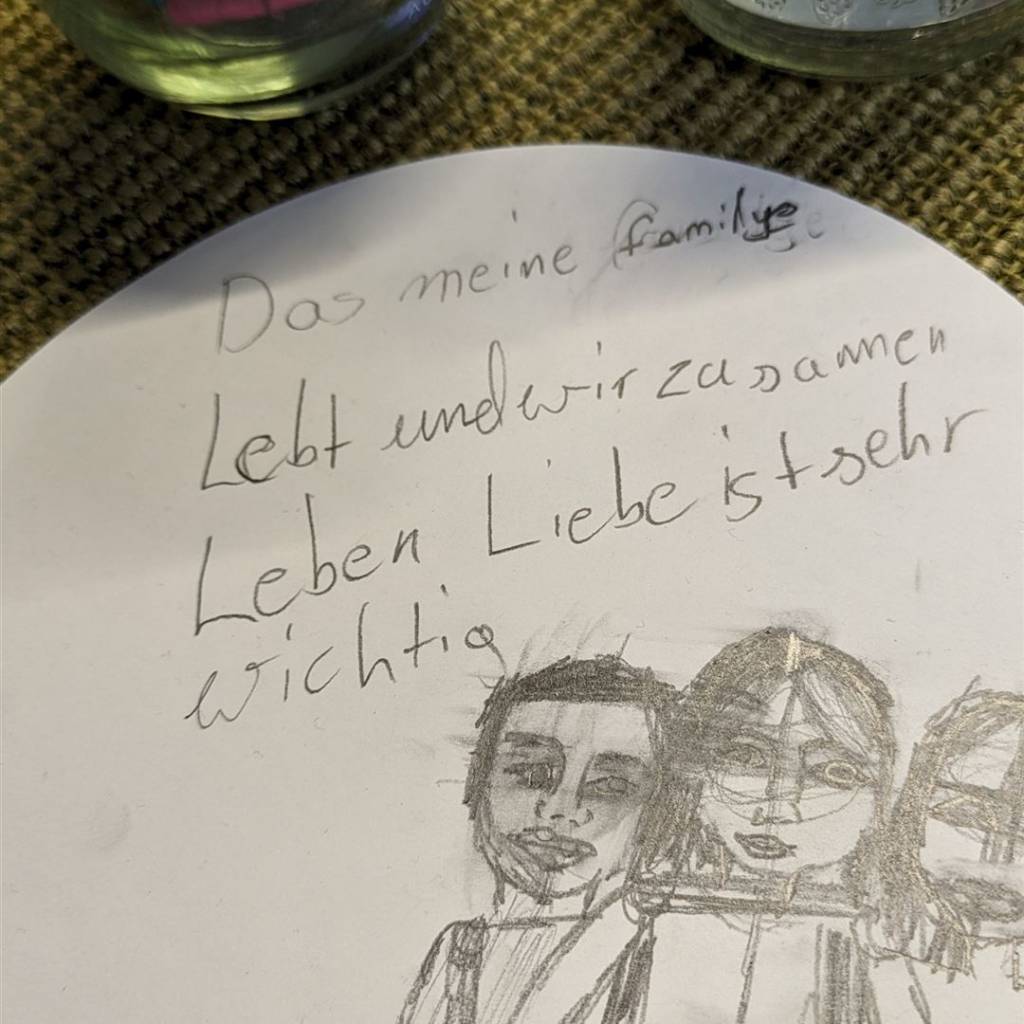 Das meine familye
Lebt und wir zusammen
Leben Liebe ist sehr
wichtig